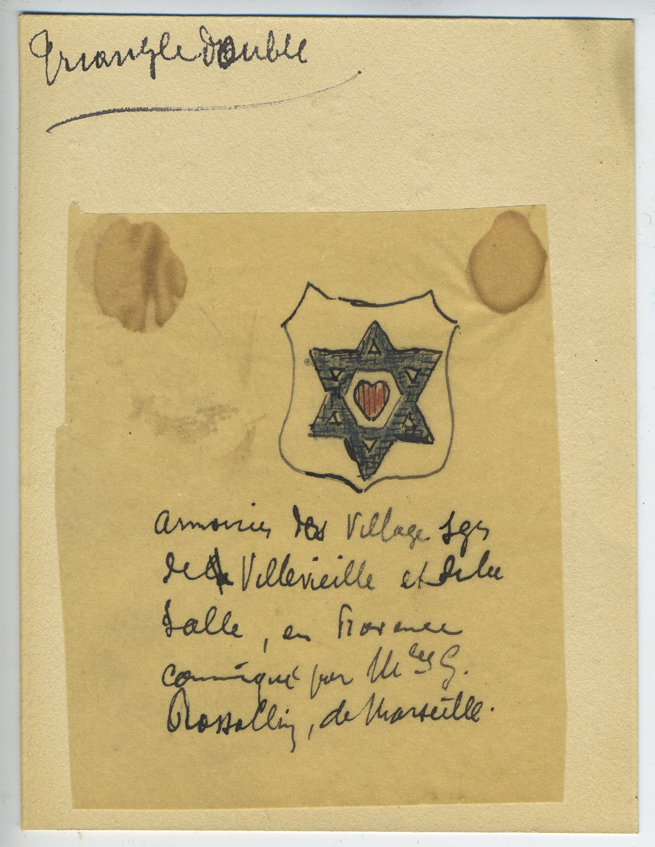 Triangle double
Armoiries des Village Sgrs
de Villevieille et de la
Salle, en Provence
communiqué par M. G.
Rossollin, de Marseille.